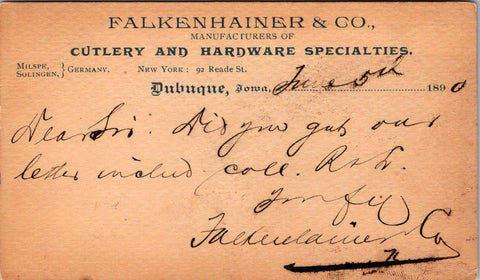 FALKENHAINER & CO.,
MANUFACTURERS OF
CUTLERY AND HARDWARE SPECIALTIES.
MILSPE, SOLINGEN, } GERMANY. NEW YORK: 92 READE ST.
Dubuque, Iowa, June 5th 1890
Dear Sir. Did you get our
letter includ coll.
Falkenhainer Co